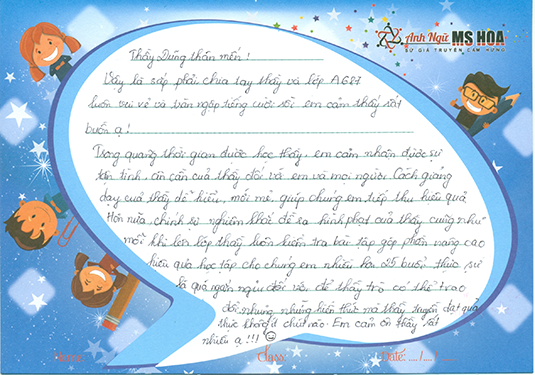 Anh Ngữ MS HOA
SỨ GIẢ TRUYỀN CẢM HỨNG
Thầy Dũng thân mến!
Vậy là sắp phải chia tay thầy và lớp AGP7
luôn vui vẻ và tràn ngập tiếng cười rồi em cảm thấy rất
buồn ạ!
Trong quang thời gian được học thầy, em cảm nhận được sự
tận tình, ân cần của thầy đối với em và mọi người. Cách giảng
dạy của thầy dễ hiểu, mới mẻ, giúp chúng em tiếp thu hiệu quả
Hơn nữa, chính sự nghiêm khắc đề ra hình phạt của thầy cũng như
mỗi khi lên lớp thầy luôn kiểm tra bài tập góp phần nâng cao
hiệu quả học tập cho chúng em nhiều hơn. 25 buổi thực sự
là quá ngắn ngủi đối với để thầy trò có thể trao
đổi nhưng những kiến thức mà thầy truyền đạt quả
thực không ít chút nào. Em cảm ơn thầy rất
nhiều ạ!!!
Name: Class: Date: .../.../...